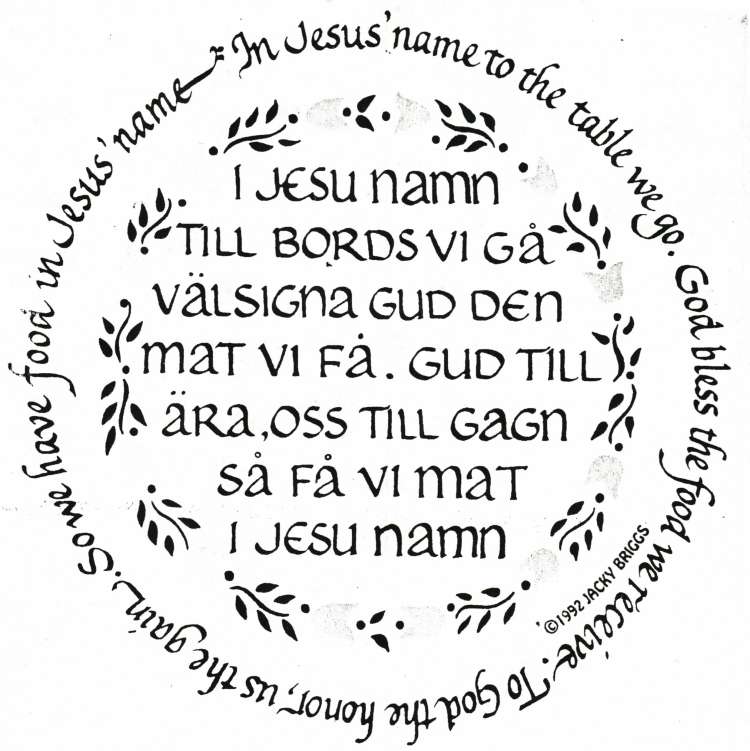 In Jesus' name to the table we go. God bless the food we receive. To God the honor, us the gain. So we have food in Jesus' name
I JESU NAMN
TILL BORDS VI GÅ
VÄLSIGNA GUD DEN
MAT VI FÅ. GUD TILL
ÄRA, OSS TILL GAGN
SÅ FÅ VI MAT
I JESU NAMN
©1992 JACKY BRIGGS